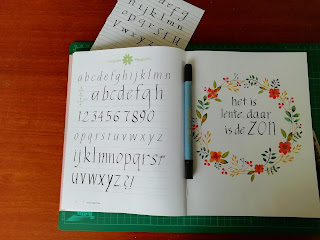 d e f g
i j k l m n
o p q r s t u
a b c d e f g h i j k l m n
a b c d e f g h
1 2 3 4 5 6 7 8 9 0
o p q r s t u v w x y z
i j k l m n o p q r s r
u v w x y z
het is
lente, daar
is de ZON